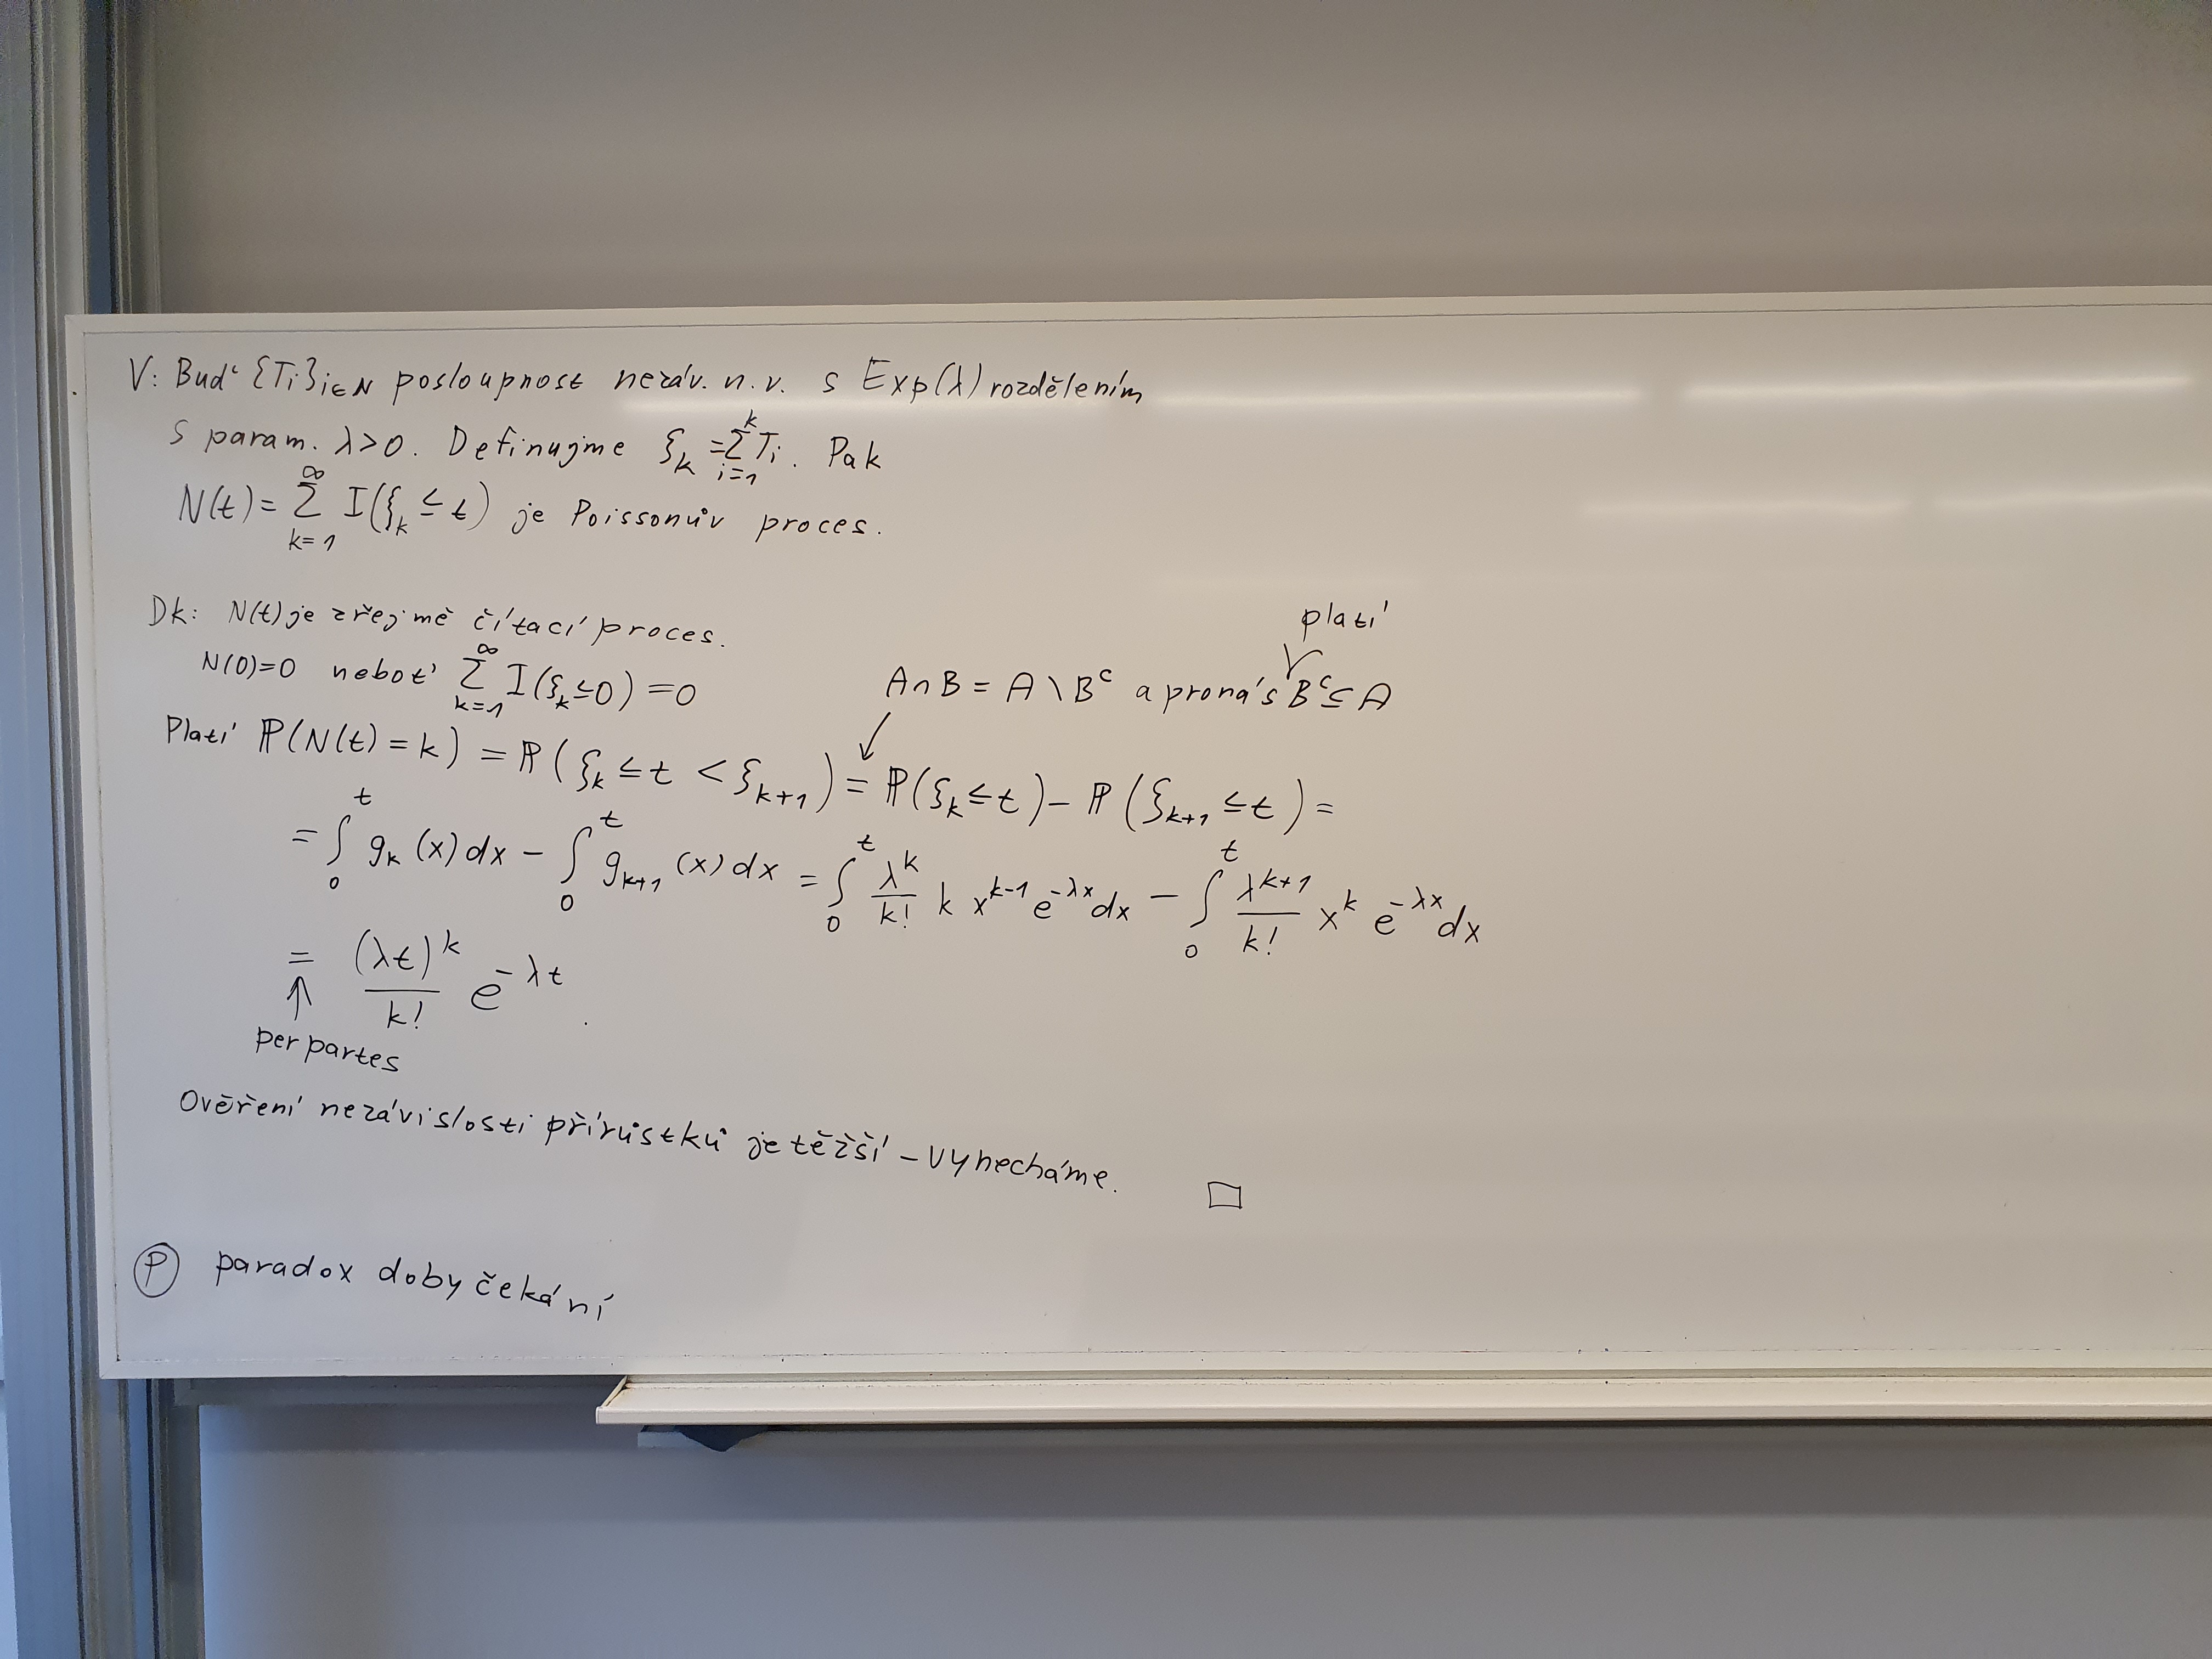 V: Buď {Ti}i∈N posloupnost nezáv. n. v. s Exp(λ) rozdělením
s param. λ>0. Definujme ξ_k = Σ_{i=1}^{k} T_i. Pak
N(t) = Σ_{k=1}^{∞} I(ξ_k ≤ t) je Poissonův proces.
Dk: N(t) je zřejmě čítací proces.
N(0)=0 neboť Σ_{k=1}^{∞} I(ξ_k ≤ 0) = 0
platí
A∩B = A \ B^c a pro nás B^c ⊆ A
Platí ℙ(N(t) = k) = ℙ(ξ_k ≤ t < ξ_{k+1}) = ℙ(ξ_k ≤ t) − ℙ(ξ_{k+1} ≤ t) =
= ∫_0^t g_k(x) dx − ∫_0^t g_{k+1}(x) dx = ∫_0^t λ^k/k! k x^{k-1} e^{-λx} dx − ∫_0^t λ^{k+1}/k! x^k e^{-λx} dx
= (λt)^k/k! e^{-λt}.
↑
per partes
Ověření nezávislosti přírůstků je těžší – vynecháme. □
Ⓟ paradox doby čekání